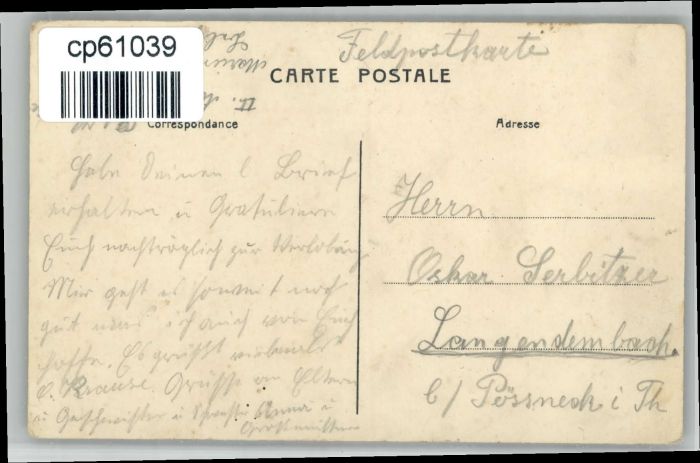 cp61039
Feldpostkarte
CARTE POSTALE
II.
Correspondance
Adresse
Habe Deinen l Brief
erhalten u Gratuliere
Euch nachträglich zur Verlobung
Mir geht es soweit noch
gut was ich auch von Euch
hoffe. Es grüßt vielmals
O. Krause. Grüsse an Eltern
u Geschwister u Anna u
Grossmutter
Herrn
Oskar Serbitzer
Langendembach.
b/ Pössneck i Th